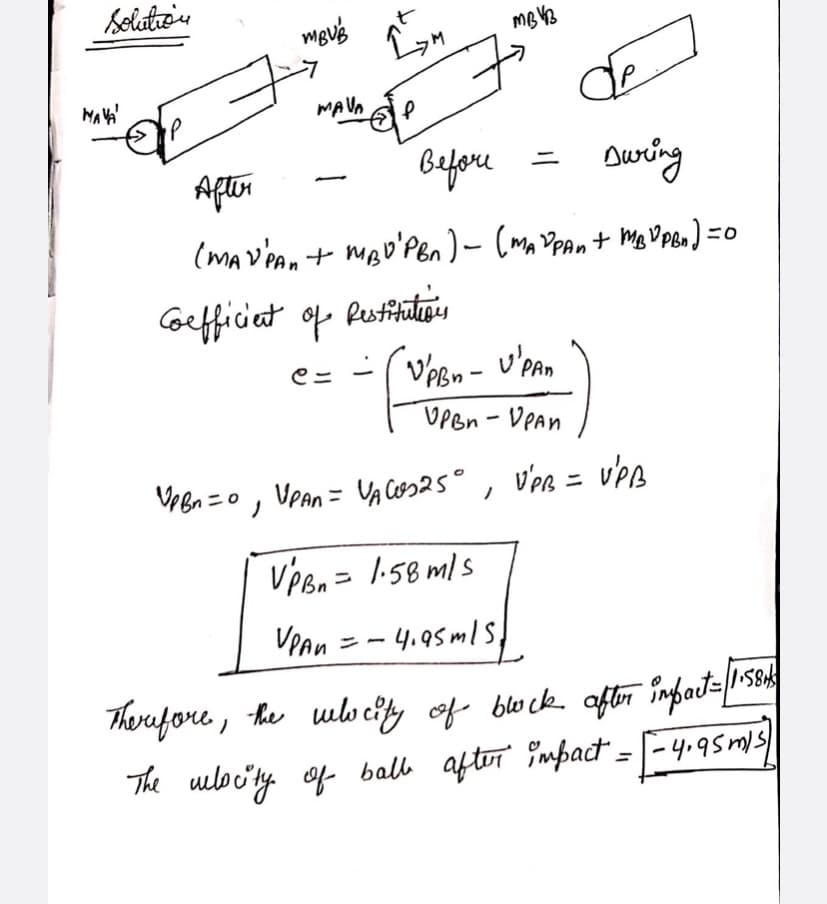 Solution
MBV'B
t
M
MBVB
MAVA'
P
MAVA
P
P
After - Before = During
(MA V'PAn + MB V'PBn) - (MA VPAn + MB VPBn) = 0
Coefficient of Restitution
e = - (V'PBn - V'PAn
VPBn - VPAn)
VPBn = 0, VPAn = VA Cos25°, V'PB = V'PB
V'PBn = 1.58 m/s
VPAn = - 4.95 m/s
Therefore, the velocity of block after impact = 1.58 m/s
The velocity of ball after impact = - 4.95 m/s